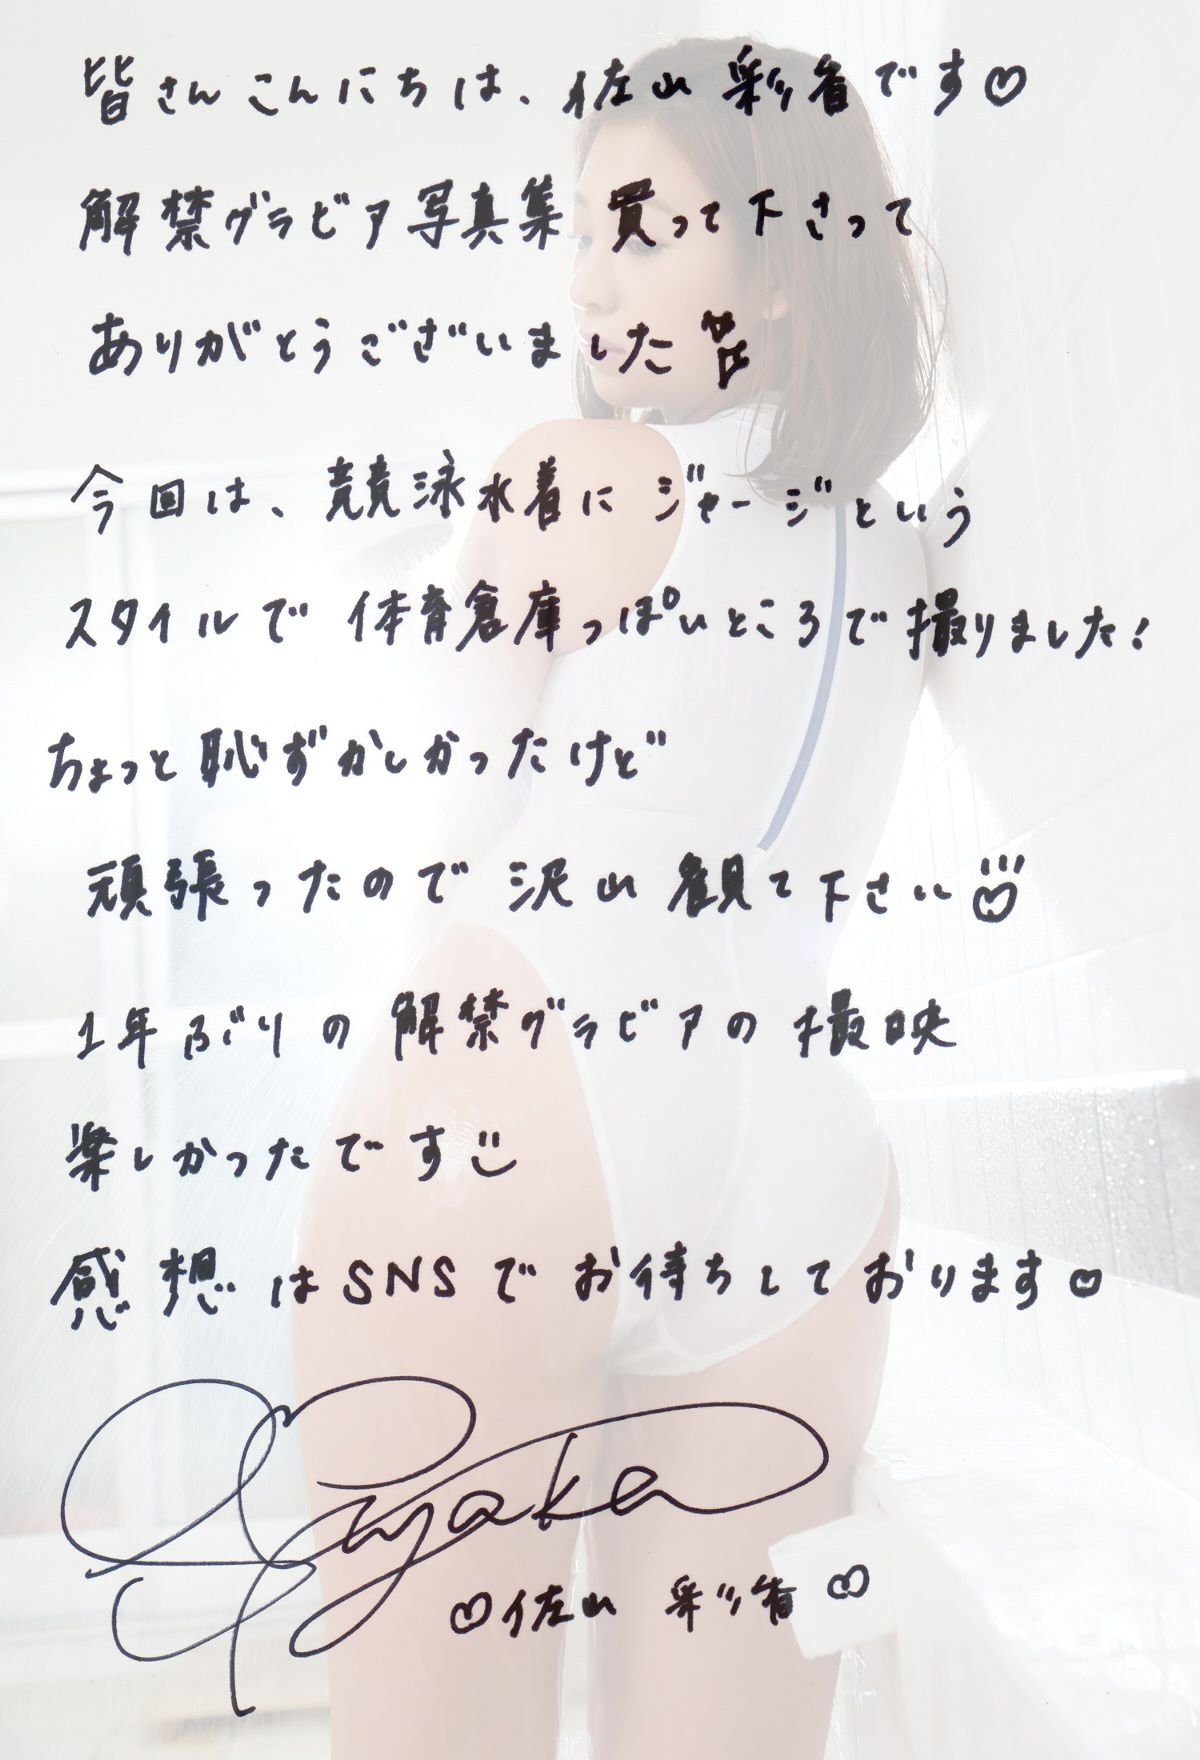 皆さんこんにちは、佐山 彩香です♡
解禁グラビア写真集 買って下さって
ありがとうございました
今回は、競泳水着にジャージという
スタイルで 体育倉庫っぽいところで撮りました!
ちょっと恥ずかしかったけど
頑張ったので 沢山観て下さい
1年ぶりの 解禁グラビアの 撮映
楽しかったです
感想はSNSでお待ちしております♡
Sayaka
♡佐山 彩香♡